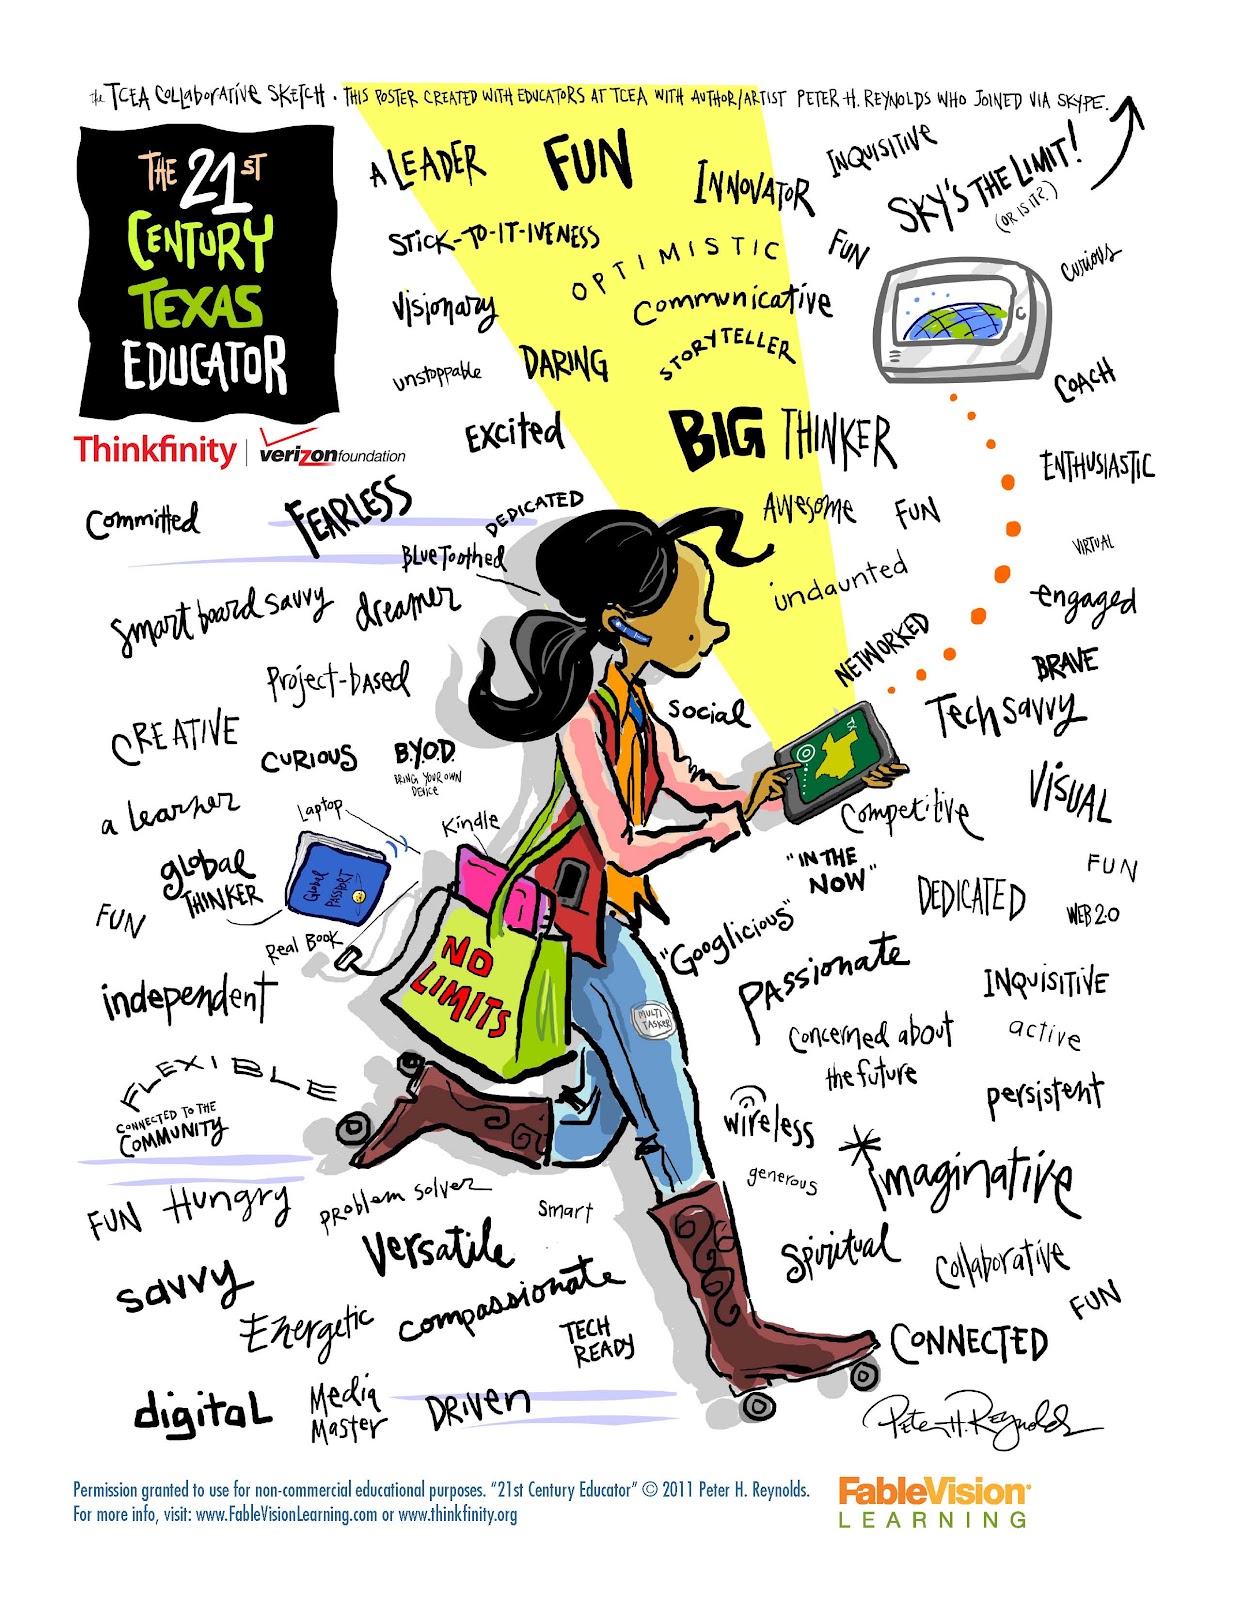 the TCEA COLLABORATIVE SKETCH • THIS POSTER CREATED WITH EDUCATORS AT TCEA WITH AUTHOR/ARTIST PETER H. REYNOLDS WHO JOINED VIA SKYPE.
THE 21ST
CENTURY
TEXAS
EDUCATOR
Thinkfinity | verizonfoundation
A LEADER
FUN
INNOVATOR
INQUISITIVE
SKY'S THE LIMIT!
(OR IS IT?)
STICK-TO-IT-IVENESS
OPTIMISTIC
FUN
Curious
Visionary
Communicative
STORYTELLER
unstoppable
DARING
COACH
Excited
BIG THINKER
ENTHUSIASTIC
Committed
FEARLESS
DEDICATED
AWESOME
FUN
BLUETOOTHED
VIRTUAL
undaunted
engaged
Smart board savvy
dreamer
NETWORKED
BRAVE
Project-based
Social
Tech savvy
TX
CREATIVE
CURIOUS
B.Y.O.D.
BRING YOUR OWN
DEVICE
VISUAL
a learner
Laptop
Kindle
Competitive
global
THINKER
Global
PASSPORT
"IN THE
NOW"
DEDICATED
FUN
WEB 2.0
FUN
Real Book
NO
LIMITS
"Googlicious"
PASSionate
INQUISITIVE
independent
MULTI
TASKER
Concerned about
the future
active
FLEXIBLE
CONNECTED TO THE
COMMUNITY
wireless
persistent
generous
imaginative
FUN
Hungry
problem solver
Smart
Versatile
Spiritual
Collaborative
savvy
Energetic
compassionate
TECH
READY
FUN
CONNECTED
digital
Media
Master
DRIVEN
Peter H. Reynolds
Permission granted to use for non-commercial educational purposes. "21st Century Educator" © 2011 Peter H. Reynolds.
For more info, visit: www.FableVisionLearning.com or www.thinkfinity.org
FableVision®
LEARNING